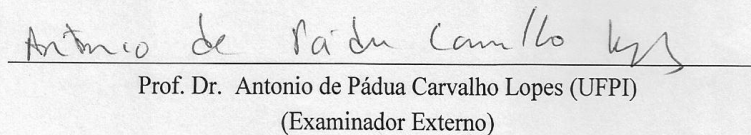 Antonio de Pádua Carvalho Lopes
Prof. Dr. Antonio de Pádua Carvalho Lopes (UFPI)
(Examinador Externo)